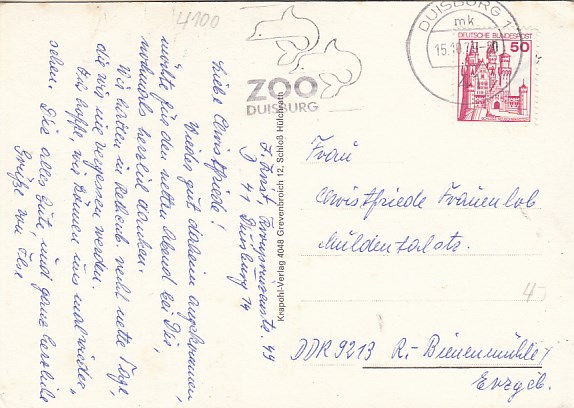 4100
ZOO
DUISBURG
DUISBURG 1
mk
15.10.79-80
DEUTSCHE BUNDESPOST
50
Liebe Christfriede!
Wieder gut daheim angekommen,
möchte für den netten Abend bei Dir,
nochmals herzlich danken.
Wir hatten in recht nette Tage,
die wir nie vergessen werden.
Ich hoffe, wir können uns mal wieder-
sehen. Dir alles Gut, und ganz herzliche
Grüße von,
41 Duisburg 14
Krapohl-Verlag 4048 Grevenbroich 12, Schloß Hülchrath
Frau
Christfriede Frauenlob
Muldentalstr.
4
DDR 9213 R.-Bienenmühle/
Erzgeb.